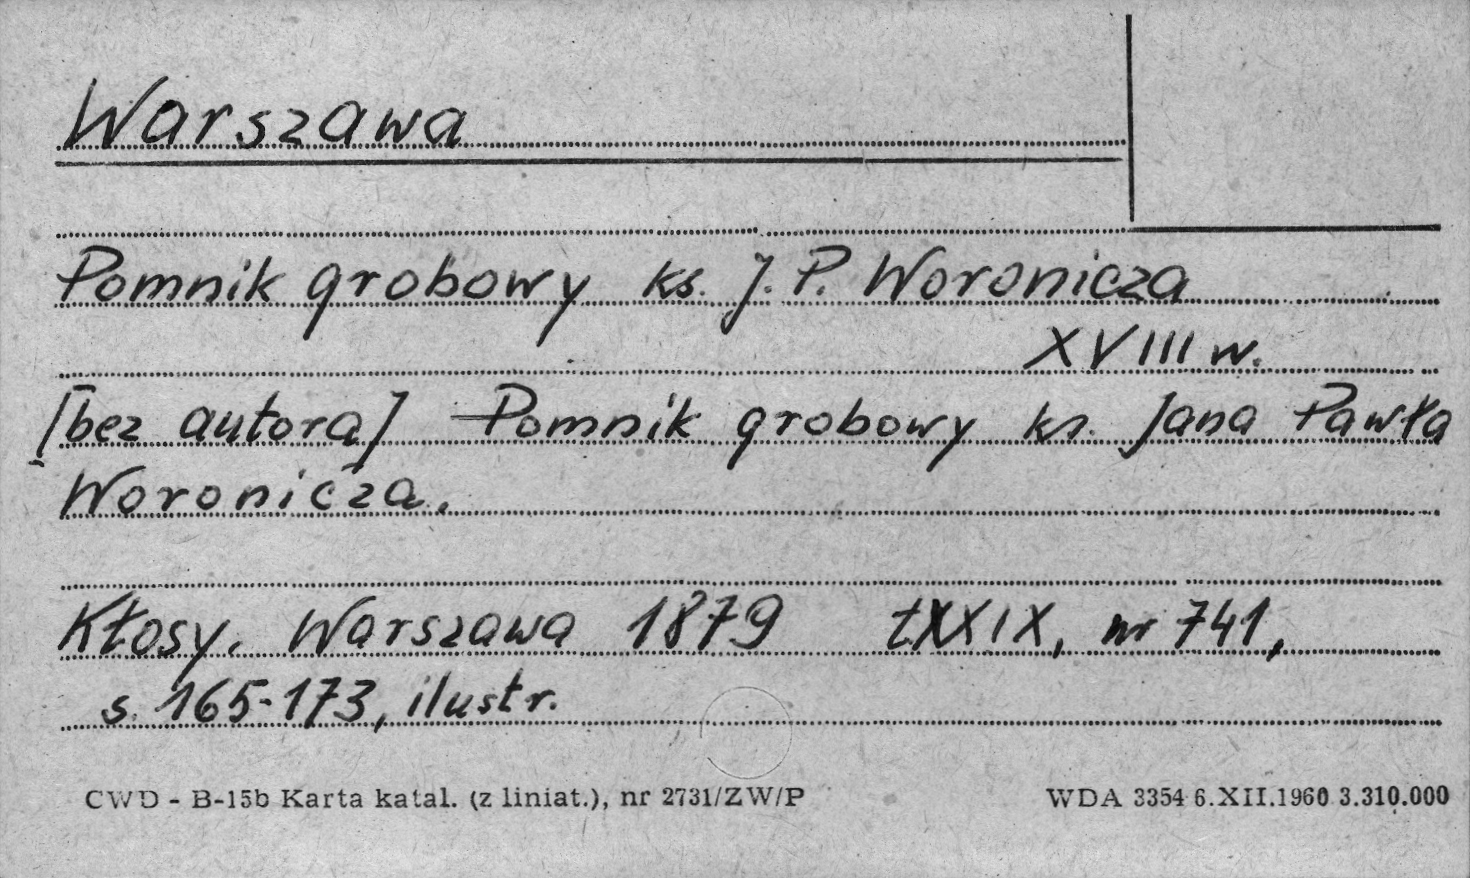 Warszawa
Pomnik grobowy ks. J. P. Woronicza
XVIII w.
[bez autora] Pomnik grobowy ks. Jana Pawła
Woronicza.
Kłosy. Warszawa 1879 t XXIX, nr 741,
s. 165-173, ilustr.
CWD - B-15b Karta katal. (z liniat.), nr 2731/ZW/P WDA 3354 6.XII.1960 3.310.000